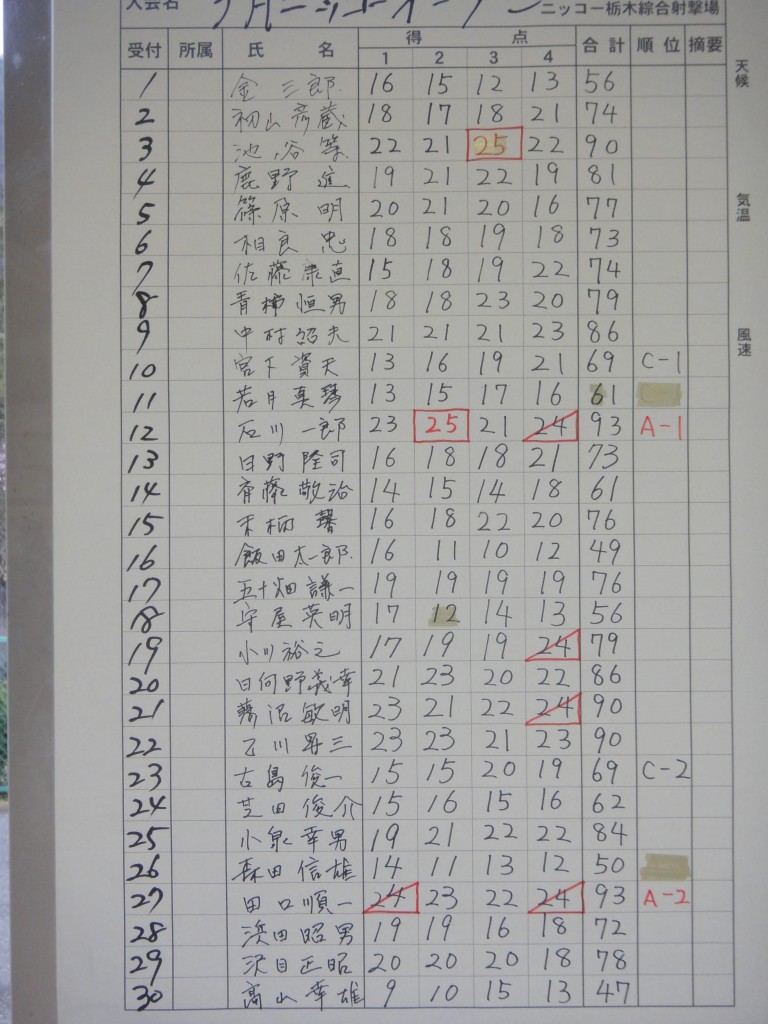 大会名 月 ニッコーオープン ニッコー栃木綜合射撃場
受付 所属 氏 名 得 点 合計 順位 摘要
1 2 3 4
天候
気温
風速
1 金三郎 16 15 12 13 56
2 初山彦蔵 18 17 18 21 74
3 池谷 22 21 25 22 90
4 鹿野進 19 21 22 19 81
5 篠原明 20 21 20 16 77
6 相良忠 18 18 19 18 73
7 佐藤康直 15 18 19 22 74
8 青柿恒男 18 18 23 20 79
9 中村昭夫 21 21 21 23 86
10 宮下資天 13 16 19 21 69 C-1
11 若月真琴 13 15 17 16 61
12 石川一郎 23 25 21 24 93 A-1
13 日野隆司 16 18 18 21 73
14 斉藤敬治 14 15 14 18 61
15 16 18 22 20 76
16 飯田太一郎 16 11 10 12 49
17 五十畑謙一 19 19 19 19 76
18 守屋英明 17 12 14 13 56
19 小川裕之 17 19 19 24 79
20 日向野義幸 21 23 20 22 86
21 沼敏明 23 21 22 24 90
22 石川昇三 23 23 21 23 90
23 古島俊一 15 15 20 19 69 C-2
24 芝田俊介 15 16 15 16 62
25 小泉幸男 19 21 22 22 84
26 森田信雄 14 11 13 12 50
27 田口順一 24 23 22 24 93 A-2
28 浜田昭男 19 19 16 18 72
29 沢目正昭 20 20 20 18 78
30 高山幸雄 9 10 15 13 47